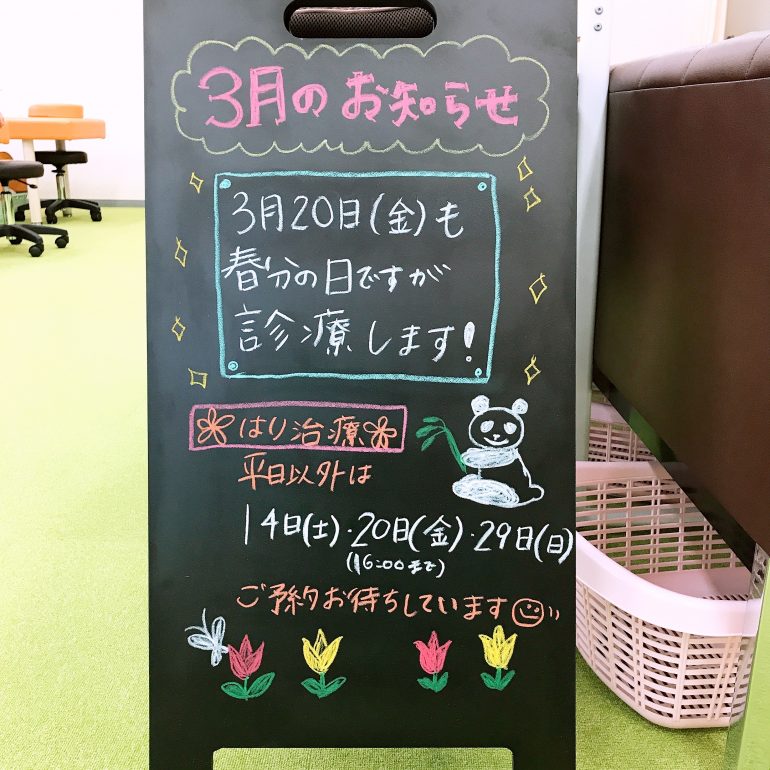 3月のお知らせ
3月20日(金)も
春分の日ですが
診療します!
はり治療
平日以外は
14日(土)・20日(金)・29日(日)
(16:00まで)
ご予約お待ちしています